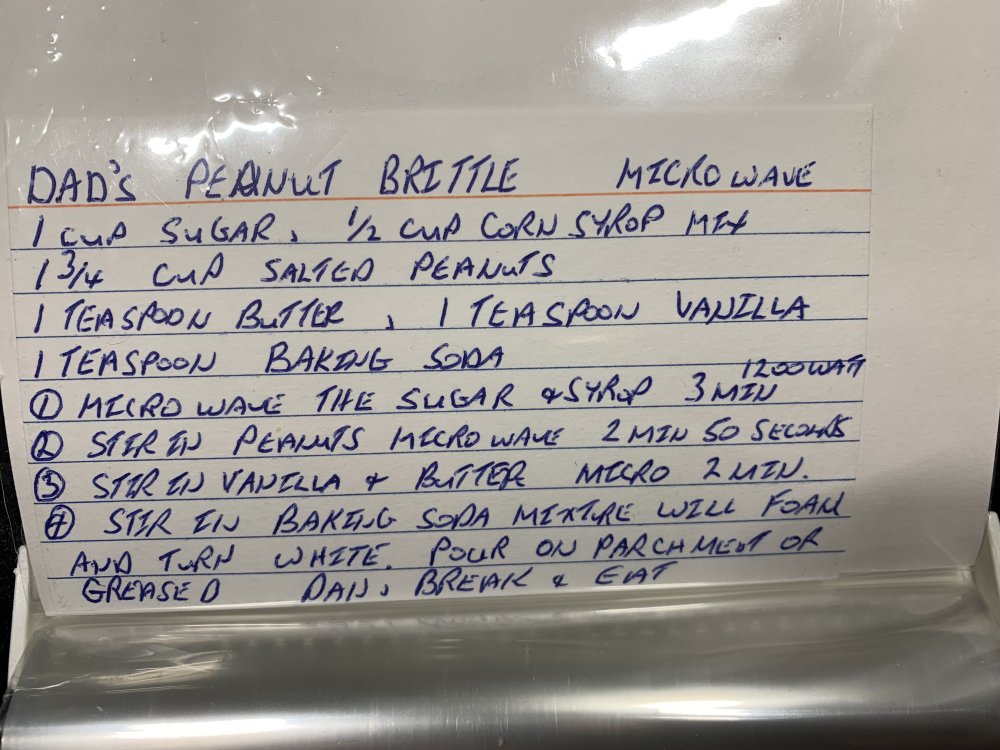 DAD'S PEANUT BRITTLE MICROWAVE
1 CUP SUGAR, 1/2 CUP CORN SYROP MIX
1 3/4 CUP SALTED PEANUTS
1 TEASPOON BUTTER, 1 TEASPOON VANILLA
1 TEASPOON BAKING SODA
1200 WATT
① MICROWAVE THE SUGAR & SYROP 3 MIN
② STIR IN PEANUTS MICROWAVE 2 MIN 50 SECONDS
③ STIR IN VANILLA + BUTTER MICRO 2 MIN.
④ STIR IN BAKING SODA MIXTURE WILL FOAM
AND TURN WHITE. POUR ON PARCHMENT OR
GREASED PAN, BREAK & EAT